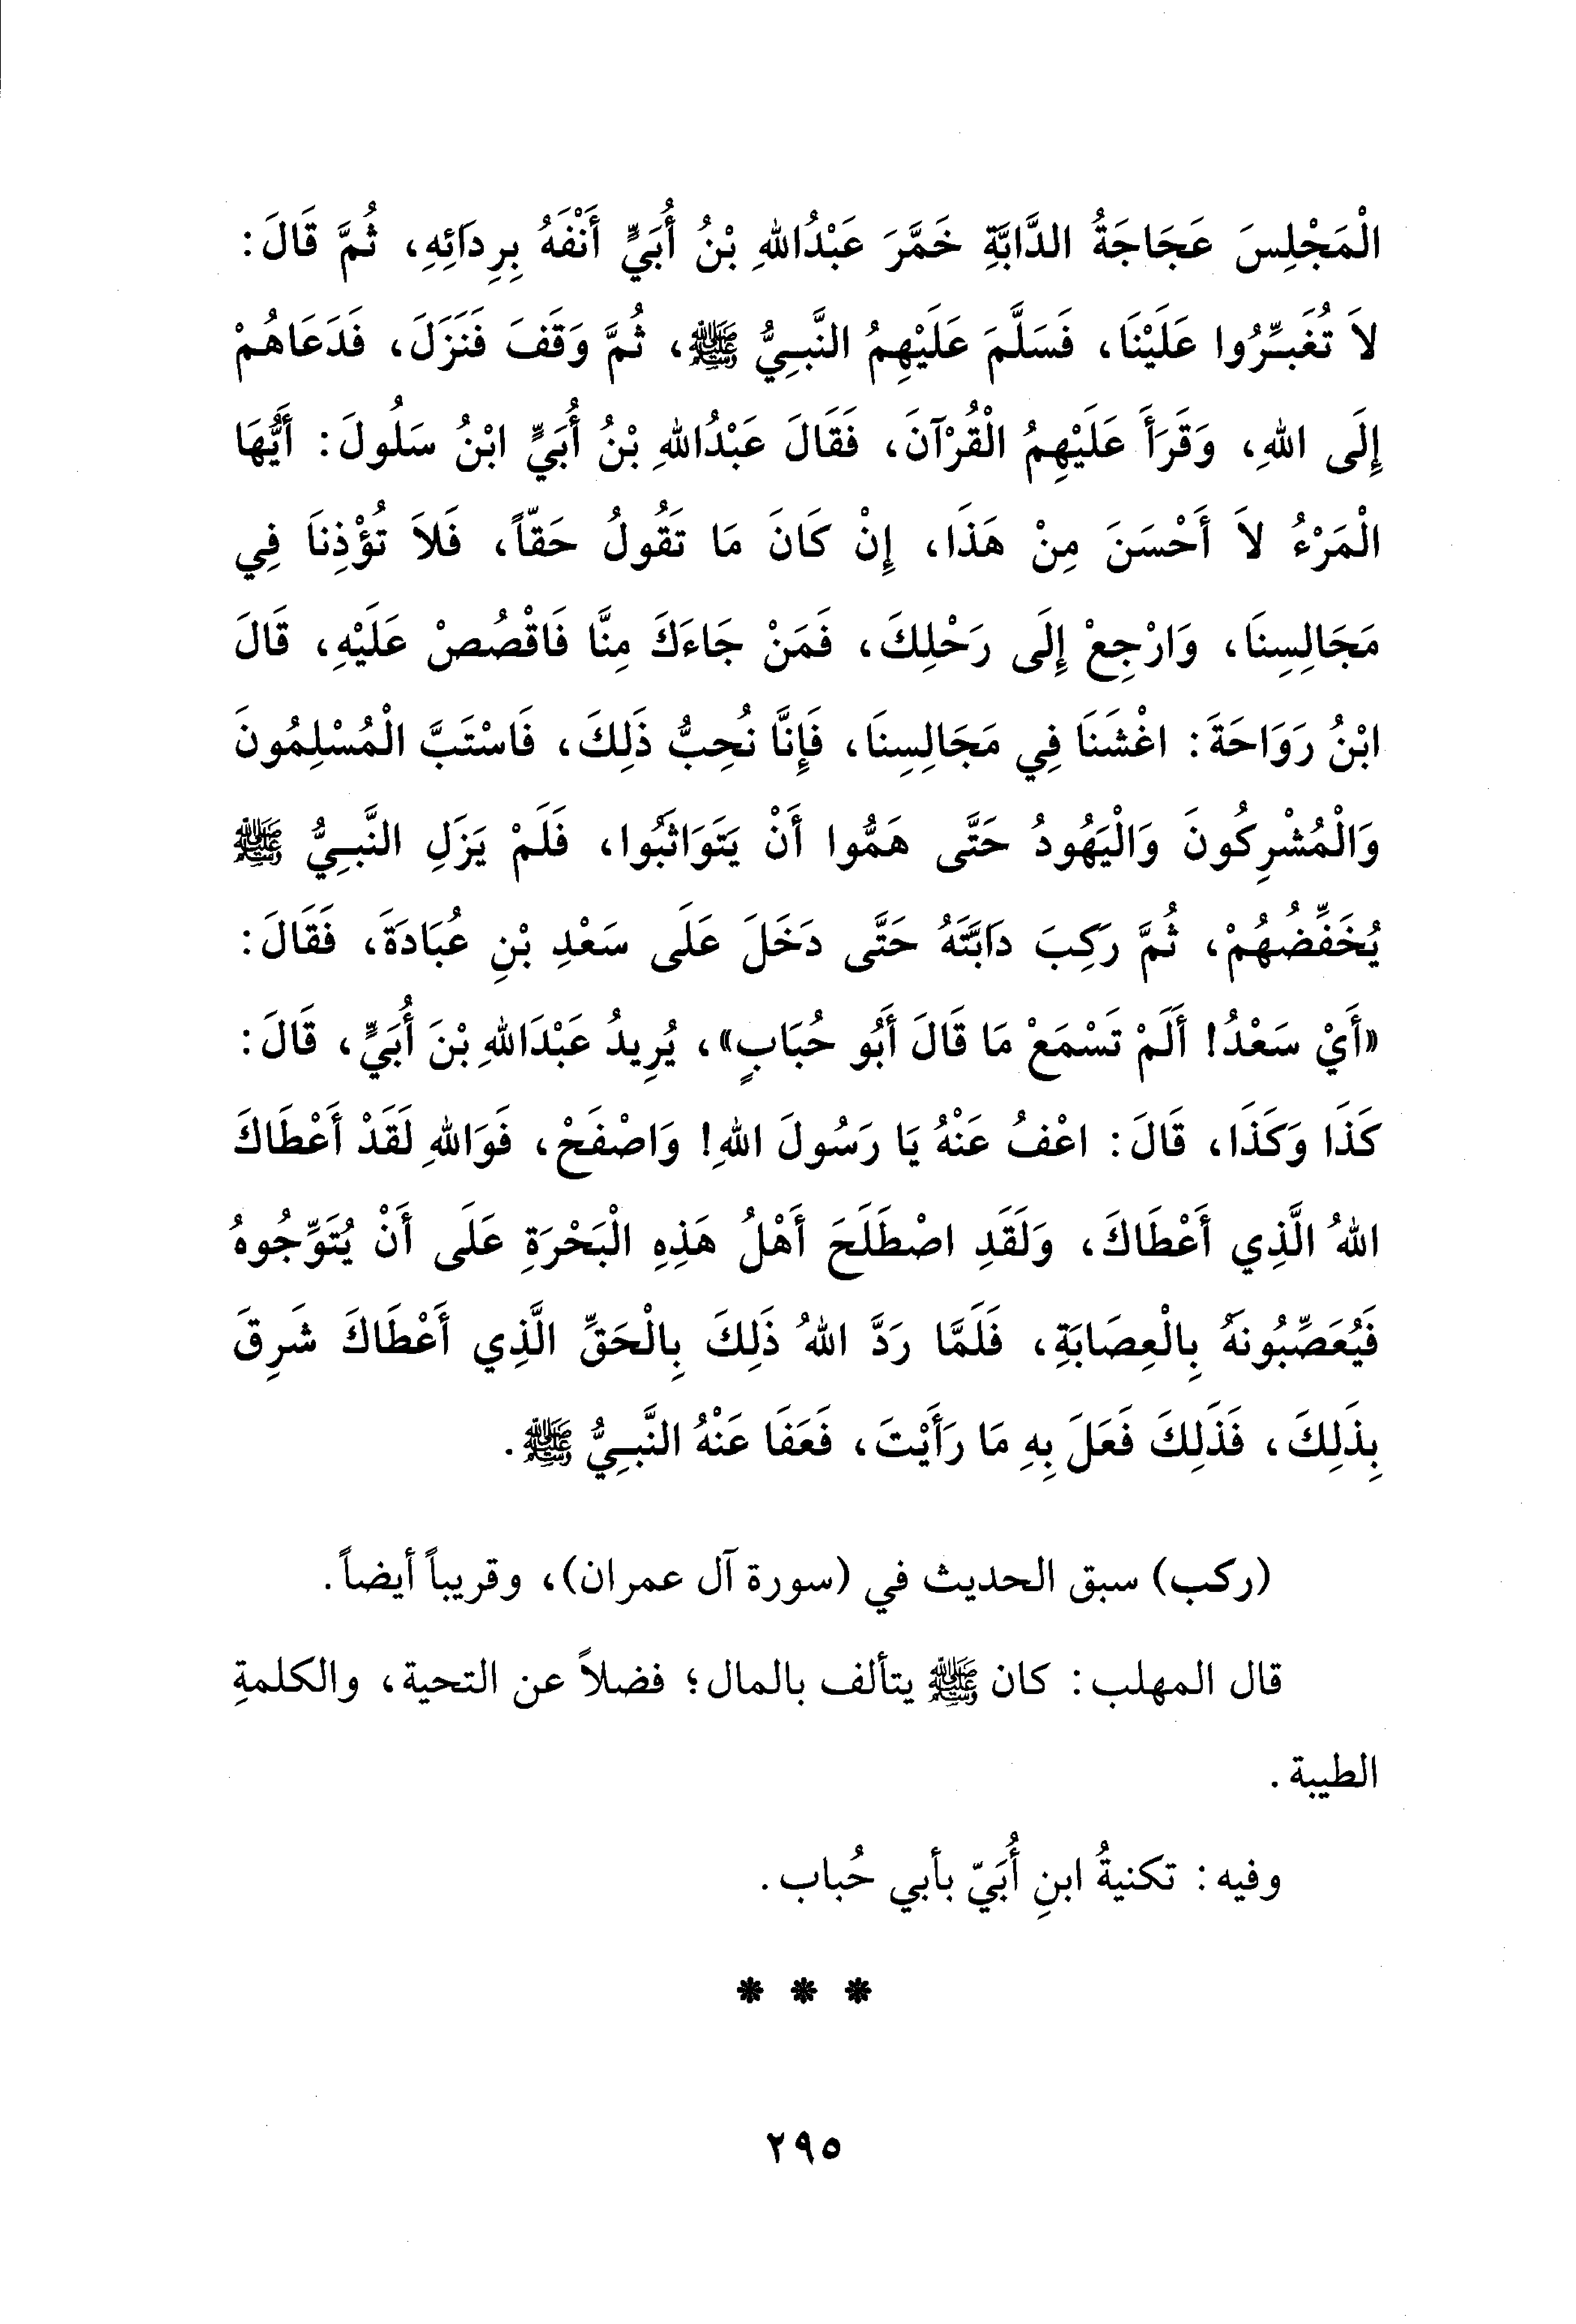 الْمَجْلِسَ عَجَاجَةُ الدَّابَّةِ خَمَّرَ عَبْدُاللهِ بْنُ أُبَيٍّ أَنْفَهُ بِرِدَائِهِ، ثُمَّ قَالَ:
لاَ تُغَبِّرُوا عَلَيْنَا، فَسَلَّمَ عَلَيْهِمُ النَّبِيُّ ﷺ، ثُمَّ وَقَفَ فَنَزَلَ، فَدَعَاهُمْ
إِلَى اللهِ، وَقَرَأَ عَلَيْهِمُ الْقُرْآنَ، فَقَالَ عَبْدُاللهِ بْنُ أُبَيٍّ ابْنُ سَلُولَ: أَيُّهَا
الْمَرْءُ لاَ أَحْسَنَ مِنْ هَذَا، إِنْ كَانَ مَا تَقُولُ حَقّاً، فَلاَ تُؤْذِنَا فِي
مَجَالِسِنَا، وَارْجِعْ إِلَى رَحْلِكَ، فَمَنْ جَاءَكَ مِنَّا فَاقْصُصْ عَلَيْهِ، قَالَ
ابْنُ رَوَاحَةَ: اغْشَنَا فِي مَجَالِسِنَا، فَإِنَّا نُحِبُّ ذَلِكَ، فَاسْتَبَّ الْمُسْلِمُونَ
وَالْمُشْرِكُونَ وَالْيَهُودُ حَتَّى هَمُّوا أَنْ يَتَوَاثَبُوا، فَلَمْ يَزَلِ النَّبِيُّ ﷺ
يُخَفِّضُهُمْ، ثُمَّ رَكِبَ دَابَّتَهُ حَتَّى دَخَلَ عَلَى سَعْدِ بْنِ عُبَادَةَ، فَقَالَ:
«أَيْ سَعْدُ! أَلَمْ تَسْمَعْ مَا قَالَ أَبُو حُبَابٍ»، يُرِيدُ عَبْدَاللهِ بْنَ أُبَيٍّ، قَالَ:
كَذَا وَكَذَا، قَالَ: اعْفُ عَنْهُ يَا رَسُولَ اللهِ! وَاصْفَحْ، فَوَاللهِ لَقَدْ أَعْطَاكَ
اللهُ الَّذِي أَعْطَاكَ، وَلَقَدِ اصْطَلَحَ أَهْلُ هَذِهِ الْبَحْرَةِ عَلَى أَنْ يُتَوِّجُوهُ
فَيُعَصِّبُونَهُ بِالْعِصَابَةِ، فَلَمَّا رَدَّ اللهُ ذَلِكَ بِالْحَقِّ الَّذِي أَعْطَاكَ شَرِقَ
بِذَلِكَ، فَذَلِكَ فَعَلَ بِهِ مَا رَأَيْتَ، فَعَفَا عَنْهُ النَّبِيُّ ﷺ.
(ركب) سبق الحديث في (سورة آل عمران)، وقريباً أيضاً.
قال المهلب: كان ﷺ يتألف بالمال؛ فضلاً عن التحية، والكلمةِ
الطيبة.
وفيه: تكنيةُ ابنِ أُبَيّ بأبي حُباب.
* * *
٢٩٥